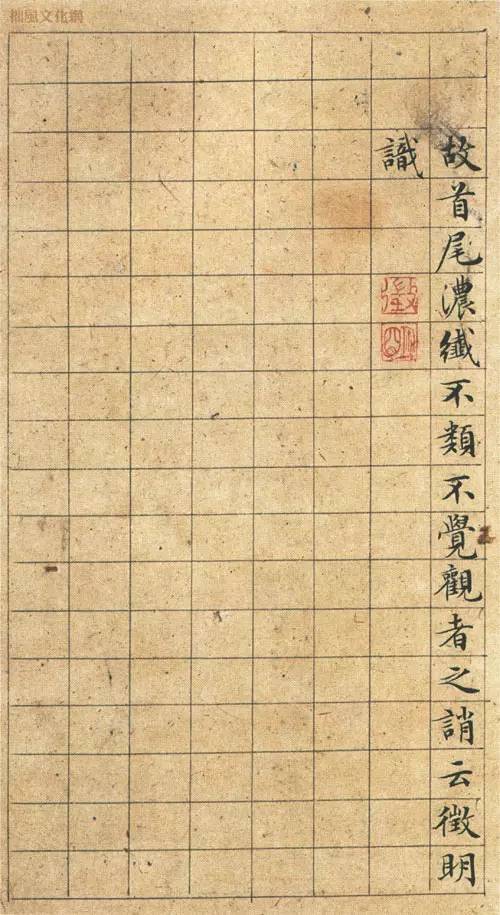 故首尾濃纖不類不覺觀者之誚云徵明
識
徵
明
拙風文化網